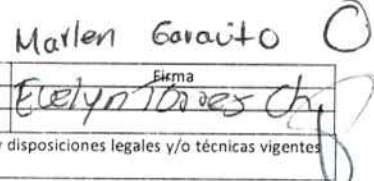 Marlen Garavito
Firma
Evelyn Torres Ch
disposiciones legales y/o técnicas vigentes